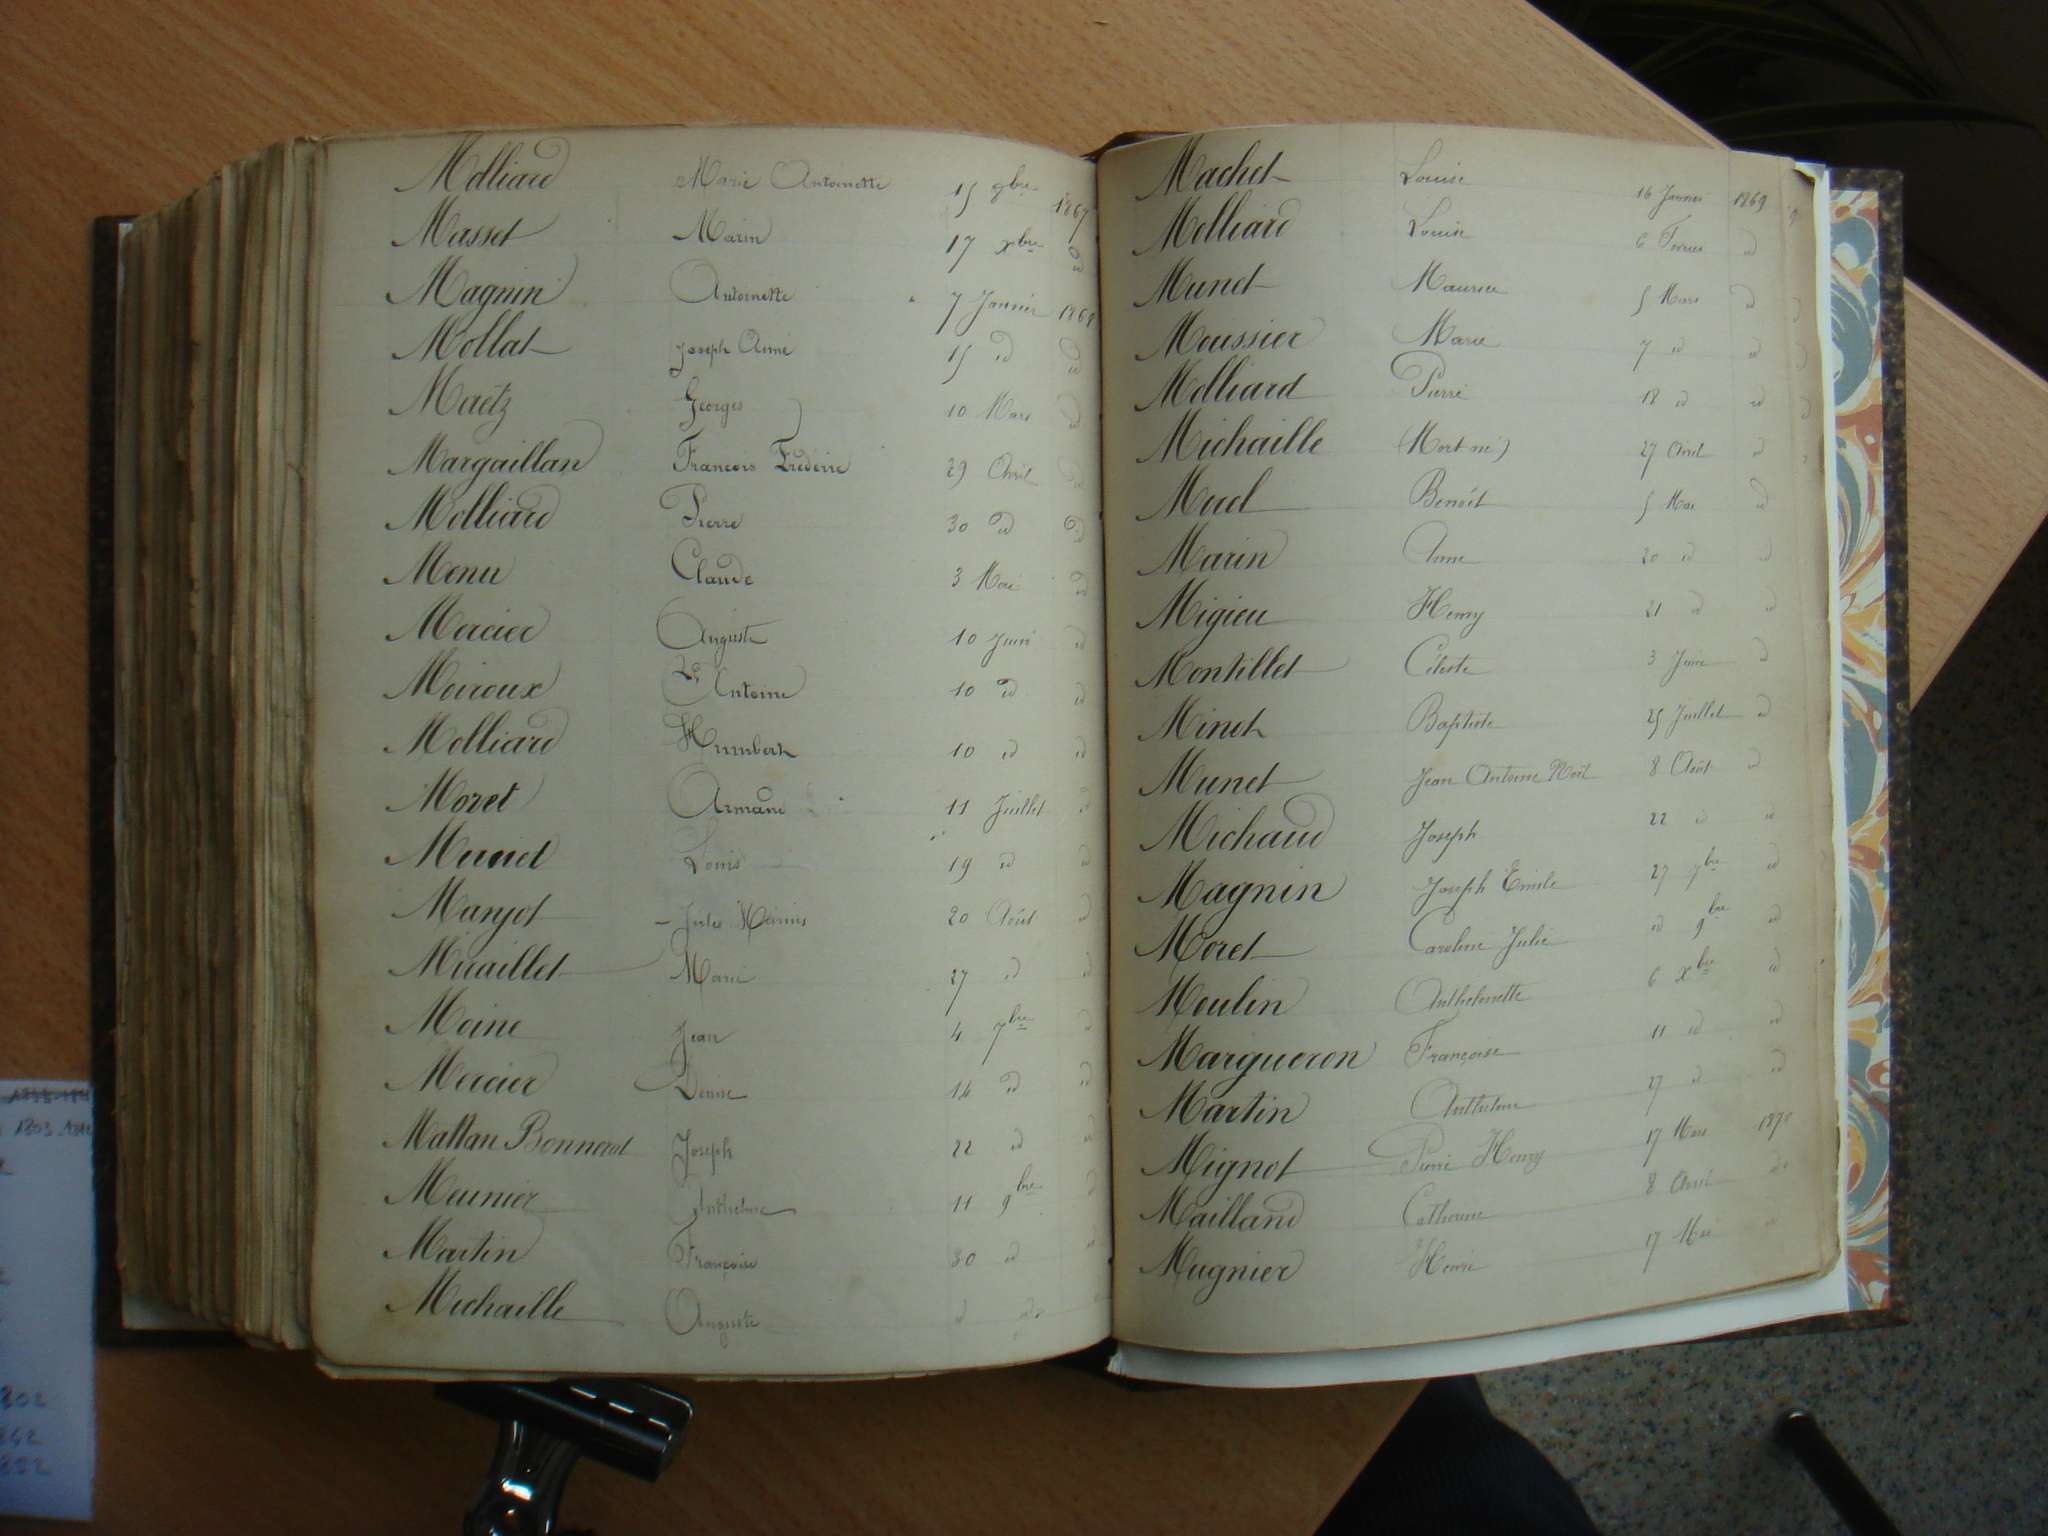 Molliard Marie Antoinette 15 9bre 1867
Masset Marin 17 xbre id
Magnin Antoinette 7 Janvier 1868
Mollat Joseph Aimé 15 id id
Maëtz Georges 10 Mars id
Margaillan François Fréderic 29 Avril id
Molliard Pierre 30 id id
Menu Claude 3 Mai id
Mercier Auguste 10 Juin id
Moiroux Antoine 10 id id
Molliard Humbert 10 id id
Moret Armand 11 Juillet id
Louis 19 id id
Manjot Jules 20 Août id
Miraillet Marie 27 id id
Moine Jean 4 7bre id
Mercier Denise 14 id id
Mattan Bonnerot Joseph 22 id id
Meunier Anthelme 11 9bre id
Martin Françoise 30 id id
Michaille Auguste id id
Machet Louise 16 Janvier 1869
Molliard Louise 6 Fevrier id
Munet Maurice 5 Mars id
Moussier Marie 7 id id
Molliard Pierre 18 id id
Michaille (Mort né) 27 Avril id
Muel Benoît 5 Mai id
Marin Anne 20 id id
Migieu Henry 21 id id
Montillet Céleste 3 Juin id
Minet Baptiste 25 Juillet id
Munet Jean Antoine Noël 8 Août id
Michaud Joseph 22 id id
Magnin Joseph Emile 27 7bre id
Moret Caroline Julie id 9bre id
Moulin Anthelmette 6 xbre id
Margueron Françoise 11 id id
Martin Anthelme 27 id id
Mignot Pierre Henry 17 Mars 1870
Mailland Catherine 8 Avril id
Mugnier Henri 17 Mai id
1803
1802